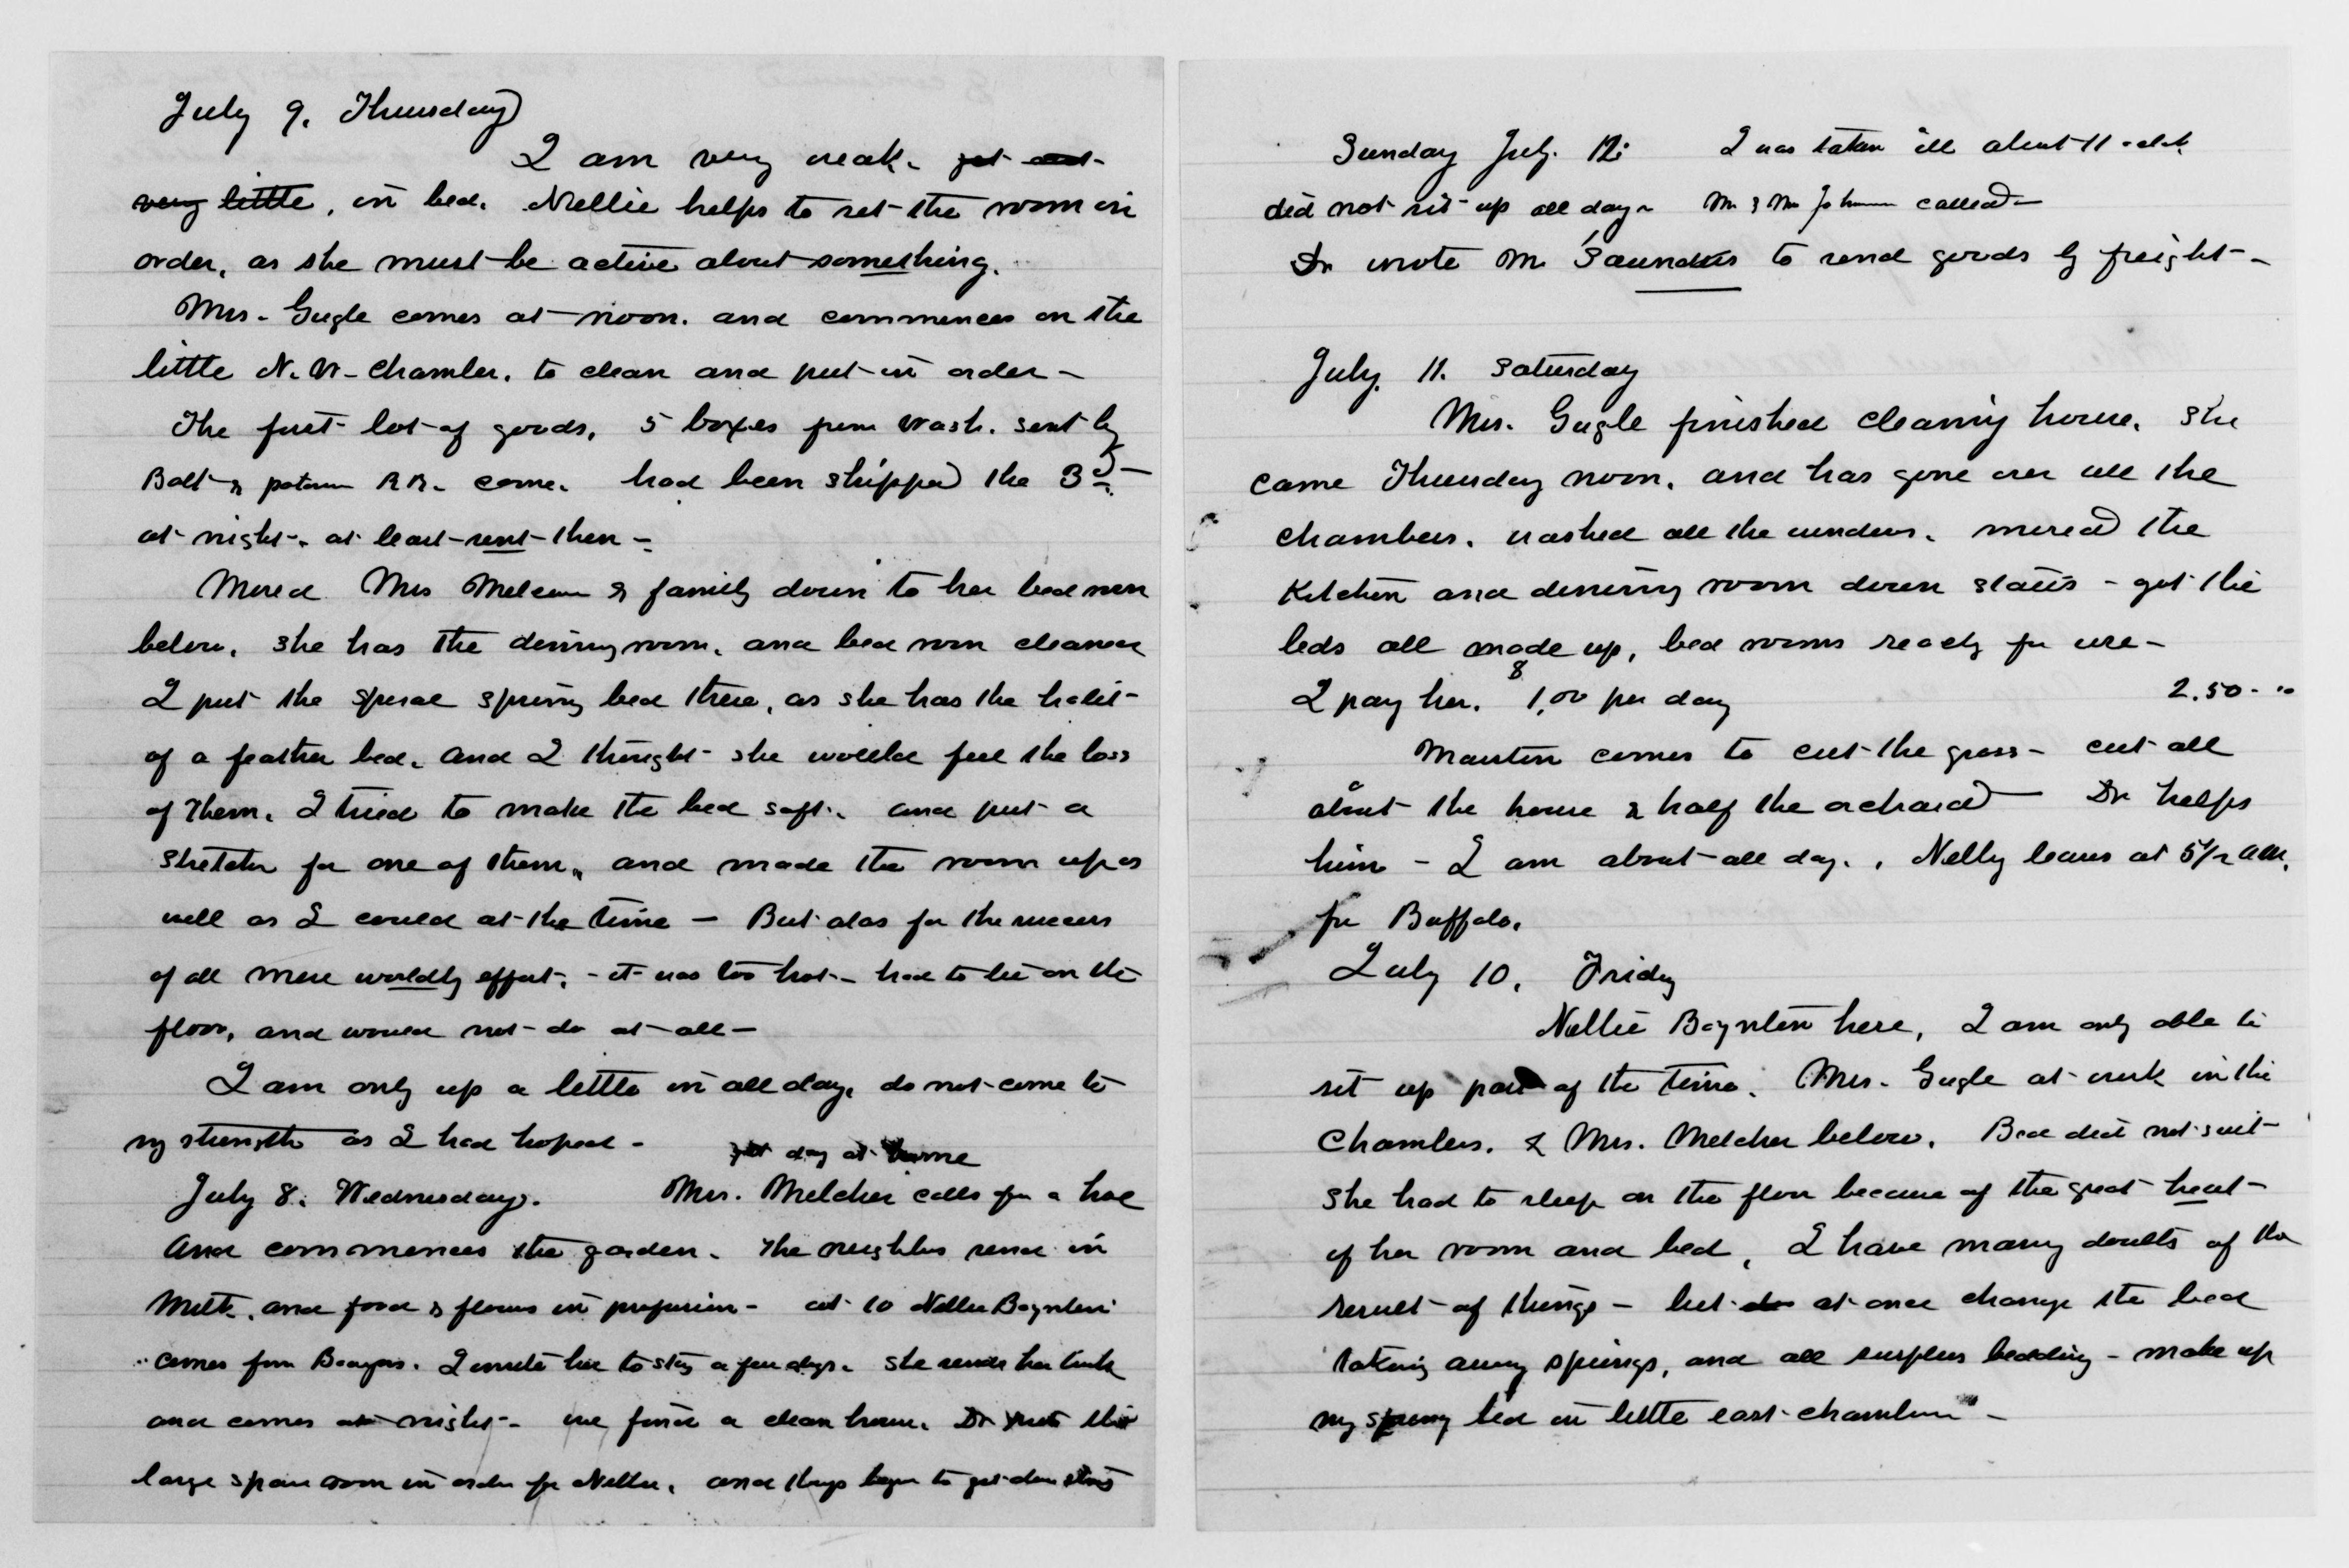 July 9. Thursday
I am very weak. get out
very little, in bed. Nellie helps to set the room in
order, as she must be active about something.
Mrs. Gugle comes at noon. and commences on the
little N. W. chamber. to clean and put in order –
The first lot of goods, 5 boxes from Wash. sent by
Balt & potomac R.R. come. had been shipped the 3d –
at night. at least sent then –
Moved Mrs Melcher & family down to her bed room
below. She has the dining room. and bed room cleaned
I put the spiral spring bed there, as she has the habit
of a feather bed. and I thought she would feel the loss
of them. I tried to make the bed soft. and put a
stretcher for one of them. and made the room up as
well as I could at the time – But alas for the success
of all mere worldly effort. – it was too hot – had to lie on the
floor, and would not do at all –
I am only up a little in all day, do not come to
my strength as I had hoped –
1st day at home
July 8. Wednesday. Mrs. Melcher calls for a hoe
and commences the garden. The neighbors send in
milk. and food & flowers in profusion – at 10 Nellie Boynton
comes from Bangor. I invite her to stay a few days. She sends her trunk
and comes at night – we find a clean house. Dr puts the
large spare room in order for Nellie. and things begin to get down stairs
Sunday July. 12. I was taken ill about 11 oclk
did not sit up all day. Mr & Mrs Johnson called –
Dr wrote Mr Saunders to send goods by freight –
July. 11. Saturday
Mrs. Gugle finished cleaning house. She
came Thursday noon. and has gone over all the
chambers. washed all the windows. moved the
Kitchen and dining room down stairs – got the
beds all made up, bed rooms ready for use –
I pay her. $ 1.00 per day 2.50
Mauton comes to cut the grass – cut all
about the house & half the orchard – Dr helps
him – I am about all day. . Nelly leaves at 5 1/2 AM.
for Buffalo.
July 10. Friday
Nellie Boynton here, I am only able to
sit up part of the time. Mrs. Gugle at work in the
Chambers. & Mrs. Melcher below. Bed did not suit
She had to sleep on the floor because of the great heat
of her room and bed, I have many doubts of the
result of things – but do at once change the bed
taking away springs, and all surplus bedding – make up
my spring bed in little east chamber –